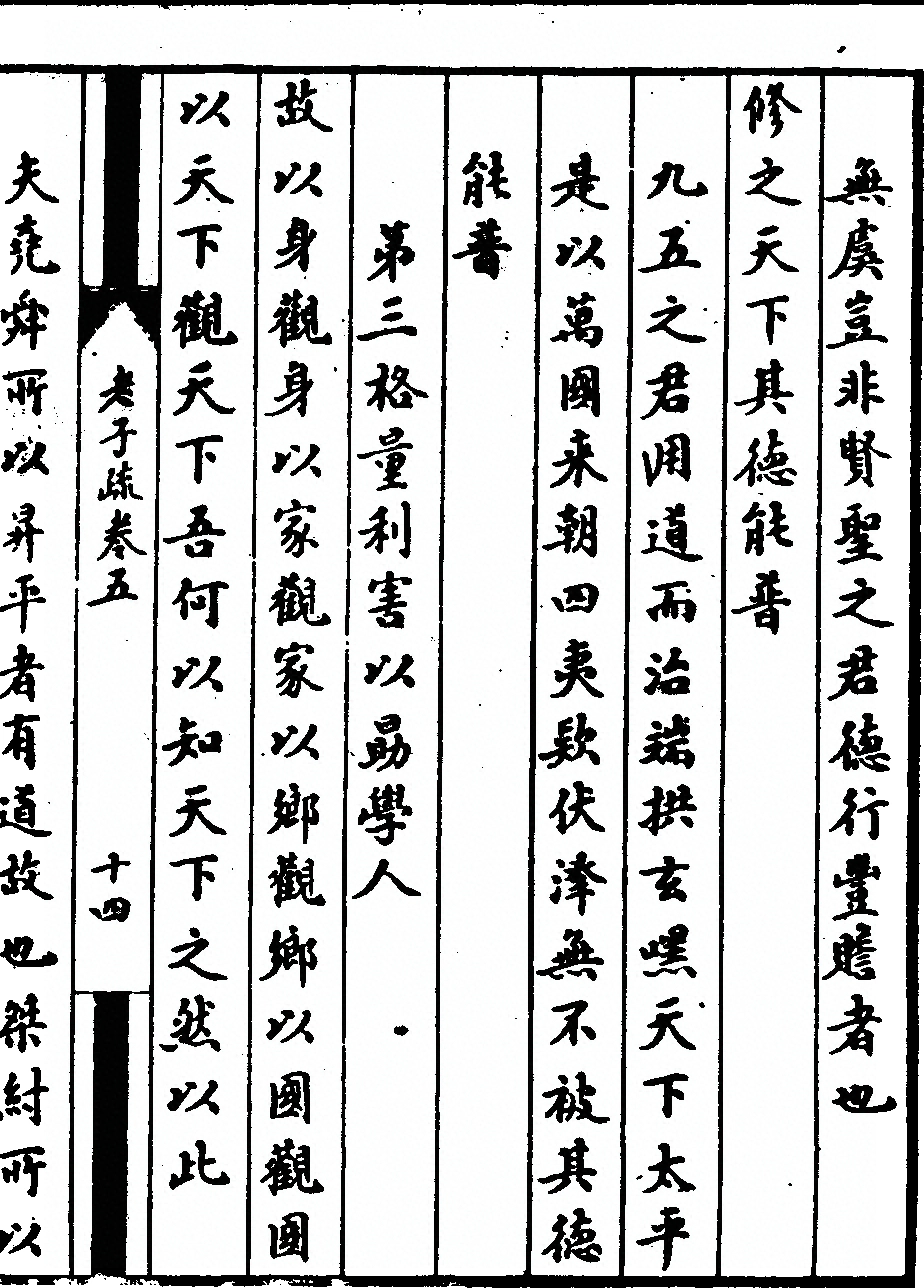 無虞豈非賢聖之君德行豐贍者也
修之天下其德能普
九五之君用道而治端拱玄嘿天下太平
是以萬國来朝四夷欵伏澤無不被其德
能普
第三格量利害以勗學人
故以身觀身以家觀家以鄉觀鄉以國觀國
以天下觀天下吾何以知天下之然以此
老子疏卷五
十四
夫堯舜所以昇平者有道故也桀紂所以